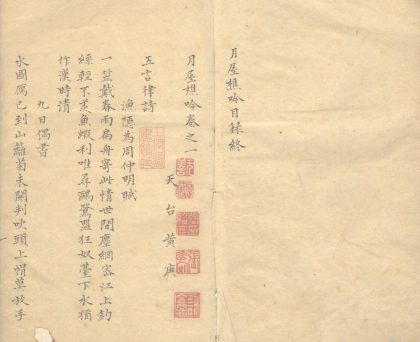 月屋樵吟目錄終
月屋樵吟卷之一
天台黄庚
五言律詩
漁隱為周仲明賦
一笠戴春雨扁舟寄此情世間塵網密江上釣
絲輕不羨魚蝦利唯尋鷗鷺盟狂奴臺下水猶
作漢時清
九日偶書
水國鴈已到山籬菊未開判吹頭上帽莫放手